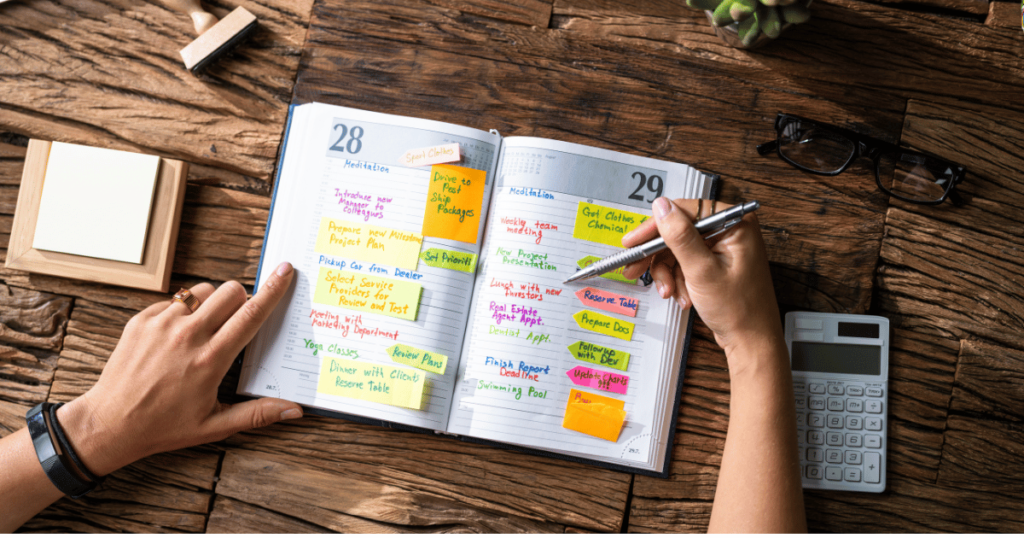 28
Sport Clothes
Meditation
Drive to
Post
Ship
Packages
Introduce new
Manager to
colleagues
Prepare new Milestone
Project Plan
Set Priorities
Pickup Car from Dealer
Select Service
Providers for
Review and Test
Meeting with
Marketing Department
Yoga Classes
Review Plans
Dinner with Clients
Reserve Table
29
Meditation
Get Clothes
Chemical
Weekly team
meeting
New Project
Presentation
Lunch with new
Investors
Reserve Table
Real Estate
Agent Appt.
Prepare Docs
Dentist Appt.
Followup
with Dev
Finish Report
Deadline
Update Charts
Swimming Pool